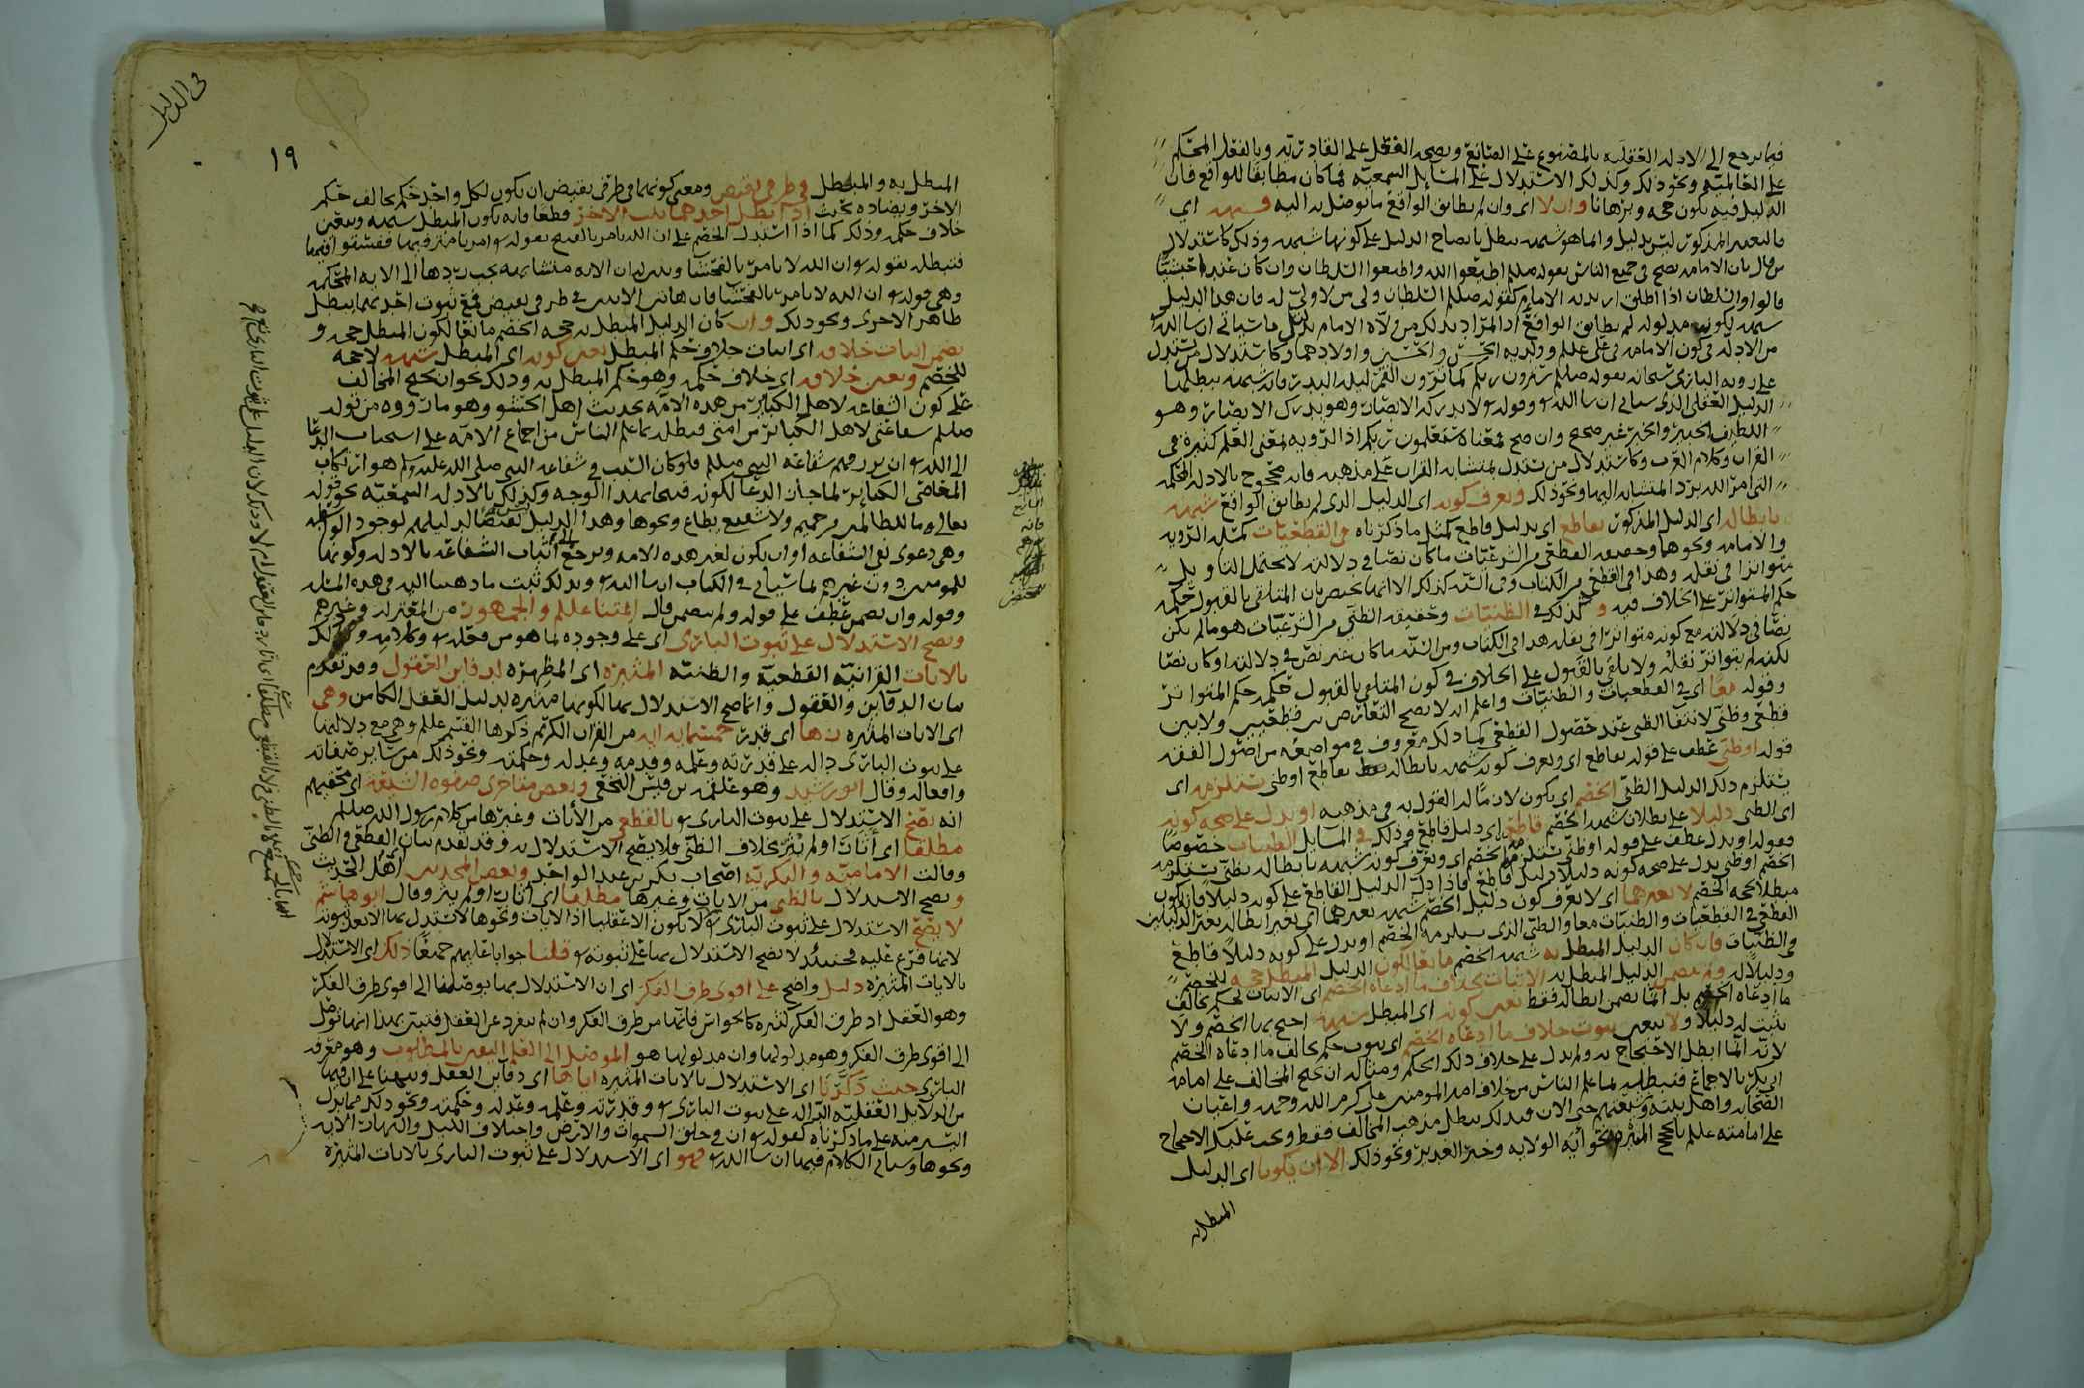 فيما يرجع الى الادلة العقلية بالمصنوع على الصانع وبصحة الفعل على القادرية وبالفعل المحكم
على العالمية ونحو ذلك وكذلك الاستدلال على المسائل السمعية فما كان مطابقا للواقع فان
الدليل فيه يكون حجة وبرهانا والا اى وان لم يطابق الواقع ما توصل به اليه فشبهة اى
فالمعين المذكور ليس بدليل وانما هو شبهة يبطل بايضاح الدليل على كونها شبهة وذلك كاستدلال
من قال بان الامامة تصح في جميع الناس بقوله صللم اطيعوا الله واطيعوا السلطان وان كان عبدا حبشيا
قالوا والسلطان اذا اطلق اريد به الامام كقوله صللم السلطان ولي من لا ولي له فان هذا الدليل
شبهة لكون مدلوله لم يطابق الواقع اذ المراد بذلك من ولاه الامام بدليل ما سياتي ان شا الله
من الادلة في كون الامامة في علي علم وولديه الحسن والحسين واولادهما وكاستدلال من يستدل
على روية الباري سبحانه بقوله صللم سترون ربكم كما ترون القمر ليلة البدر فانه شبهة يبطلها
الدليل العقلي الذي سياتي ان شا الله وقوله لا تدركه الابصار وهو يدرك الابصار وهو
اللطيف الخبير والخبر غير صحيح وان صح فمعناه ستعلمون ربكم اذ الروية بمعنى العلم كثيرة في
القران وكلام العرب وكاستدلال من يستدل بمتشابه القران على مذهبه فانه محجوج بالادلة المحكمة
التي امر الله برد المتشابه اليها ونحو ذلك ويعرف كونه اى الدليل الذي لم يطابق الواقع شبهة
بابطاله اى الدليل المذكور بقاطع اى بدليل قاطع كمثل ما ذكرناه في القطعيات كمسئلة الروية
والامامة ونحوهما وحقيقة القطعي من الشرعيات ما كان نصا في دلالته لا يحتمل التاويل
متواترا في نقله وهذا في القطعي من الكتاب وفي السنة كذلك الا انها تختص بان المتلقى بالقبول حكمه
حكم المتواتر على الخلاف فيه وكذلك في الظنيات وحقيقة الظني من الشرعيات هو ما لم يكن
نصا في دلالته مع كونه متواترا في نقله هذا في الكتاب ومن السنة ما كان غير نص في دلالته او كان نصا
لكنه لم يتواتر نقله ولا تلقي بالقبول على الخلاف في كون المتلقى بالقبول حكمه حكم المتواتر
وقوله معا اى في القطعيات والظنيات واعلم انه لا يصح التعارض بين قطعيين ولا بين
قطعي وظني لانتفا الظن عند حصول القطعي كما ذلك معروف في مواضعه من اصول الفقه
قوله او ظني عطف على قوله بقاطع اى ويعرف كونه شبهة بابطاله بقاطع او ظني يستلزمه اى
يستلزم ذلك الدليل الظني الخصم اى يكون لازما له القول به في مذهبه او يدل على صحة كونه
اى الظني دليلا على بطلان شبهة الخصم قاطع اى دليل قاطع وذلك في المسايل الظنيات خصوصا
وقوله او يدل عطف على قوله او ظني يستلزمه الخصم اى ويعرف كونه شبهة بابطاله بظني يستلزمه
الخصم او ظني يدل على صحة كونه دليلا دليل قاطع فاذا دل الدليل القاطع على كونه دليلا فانه يكون
مبطلا لحجة الخصم لا بغيرهما اى لا يعرف كون دليل الخصم شبهة بغيرهما اى بغير ابطاله بغير الدليلين
القطعي في القطعيات والظنيات معا والظني الذي يستلزمه الخصم او يدل على كونه دليلا قاطع
في الظنيات فان كان الدليل المبطل به شبهة الخصم مانعا لكون الدليل المبطل حجة للخصم
ودليلا له ولم يتضمن الدليل المبطل به الاثبات بخلاف ما ادعاه الخصم اى الاثبات لحكم يخالف
ما ادعاه الخصم بل انما تضمن ابطاله فقط تعين كونه اى المبطل شبهة احتج بها الخصم ولا
يثبت له دليلا ولا يتعين ثبوت خلاف ما ادعاه الخصم اى ثبوت حكم يخالف ما ادعاه الخصم
لانه انما ابطل الاحتجاج به ولم يدل على خلاف ذلك الحكم ومثاله ان يحتج المخالف على امامة
ابي بكر بالاجماع فنبطله بما علم الناس من خلاف امير المومنين علي كرم الله وجهه واعيان
الصحابة واهل بيته وشيعتهم حتى الان وبذلك يبطل مذهب المخالف فقط ويجب عليك الاحتجاج
على امامته علم بالحجج المثيرة نحو اية الولاية وخبر الغدير ونحو ذلك الا ان يكونا اى الدليل
المبطل به
في الدليل
١٩
المبطل به والمبطل في طرفي نقيض ومعنى كونهما في طرفي نقيض ان يكون لكل واحد حكم يخالف حكم
الاخر ويضاده بحيث اذا بطل احدهما ثبت الاخر قطعا فانه يكون المبطل شبهة ويتعين
خلاف حكمه وذلك كما اذا استدل الخصم على ان الله يامر بالقبيح بقوله امرنا مترفيها ففسقوا فيها
فنبطله بقوله ان الله لا يامر بالفحشا ونبين ان الاية متشابهة يجب ردها الى الاية المحكمة
وهي قوله ان الله لا يامر بالفحشا فان هاتين الايتين في طرفي نقيض فمع ثبوت احدهما يبطل
ظاهر الاخرى ونحو ذلك وان كان الدليل المبطل به حجة الخصم مانعا لكون المبطل حجة و
تضمن اثبات خلافه اى اثبات خلاف حكم المبطل تعين كونه اى المبطل شبهة لا حجة
للخصم وتعين خلافه اى خلاف حكمه وهو حكم المبطل به وذلك نحو ان يحتج المخالف
على كون الشفاعة لاهل الكبائر من هذه الامة بحديث اهل الحشو وهو ما رووه من قوله
صللم شفاعتي لاهل الكبائر من امتي فنبطله بما علم الناس من اجماع الامة على استحباب الدعا
الى الله ان يرزقهم شفاعة النبي صللم فلو كان السبب في شفاعة النبي صلى الله عليه وسلم هو ارتكاب
المعاصي الكبائر لما جاز الدعا لكونه قبيحا بهذا الوجه وكذلك بالادلة السمعية نحو قوله
تعالى وما للظالمين من حميم ولا شفيع يطاع ونحوها وهذا الدليل
وهي دعوى نفي الشفاعة او ان يكون لغير هذه الامة ويرجع الى اثبات الشفاعة بالادلة وكونها
للمومنين دون غيرهم لما سياتي في الكتاب ان شا الله وبذلك ثبت ما ذهبنا اليه في هذه المسئلة
وقوله وان تضمن عطف على قوله ولم يتضمن قال ائمتنا عللم والجمهور من المعتزلة وغيرهم
ويصح الاستدلال على ثبوت الباري اى على وجوده لما هو من فعله وكلامه وذلك
بالايات القرانية القطعية والظنية المثيرة اى المظهرة لدفاين العقول وقد تقدم
بيان الدفاين والعقول وانما صح الاستدلال بها لكونها مثيرة لدليل العقل الكامن وهي
اى الايات المثيرة زها اى قدر خمسماية اية من القران الكريم ذكرها القسم علم وهي مع دلالتها
على ثبوت الباري دالة على قدرته وعلمه وقدمه وعدله وحكمته ونحو ذلك من ساير صفاته
وافعاله وقال ابو رشيد وبعض متاخري صفوة الشيعة اى محققيهم
انه يصح الاستدلال على ثبوت الباري بالقطعي من الايات وغيرها من كلام رسول الله صللم
مطلقا اى اثار او لم يثر بخلاف الظني فلا يصح الاستدلال به وقد تقدم بيان القطعي والظني
وقالت الامامية والبكرية اصحاب بكر بن عبد الواحد وبعض المحدثين اهل الحديث
ويصح الاستدلال بالظني من الايات وغيرها مطلقا اى اثارت او لم يثر وقال ابو هاشم
لا يصح الاستدلال على ثبوت الباري الا ان يكون الا عقليا اذ الايات ونحوها لا يستدل بها الا بعد ثبوته
لانها فرع عليه فحينئذ لا يصح الاستدلال بها على ثبوته قلنا جوابا عليهم جميعا ذلك اى الاستدلال
بالايات المثيرة دليل واضح على اقوى طرق الفكر اى ان الاستدلال بها يوصلنا الى اقوى طرق الفكر
وهو العقل اذ طرق الفكر كثيرة كالحواس فانها من طرق الفكر وان لم تنفرد عن العقل فتبين بهذا انها توصل
الى اقوى طرق الفكر وهو مدلولها وان مدلولها هو الموصل الى العلم اليقين بالمطلوب وهو معرفة
الباري حيث ذكرنا اى الاستدلال بالايات المثيرة اياها اى دفاين العقل وتنبيهنا على ان فيها
من الدلايل العقلية الدالة على ثبوت الباري وقدرته وعلمه وعدله وحكمته ونحو ذلك مما يدل
اليسير منه على ما ذكرناه كقوله ان في خلق السموات والارض واختلاف الليل والنهار الاية
ونحوها وسياتي الكلام فيها ان شا الله فهو اى الاستدلال على ثبوت الباري بالايات المثيرة